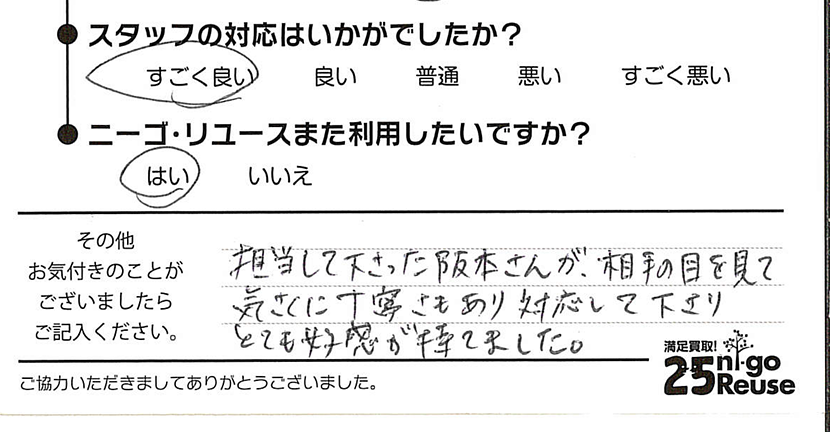 スタッフの対応はいかがでしたか？
すごく良い 良い 普通 悪い すごく悪い
ニーゴ・リユースまた利用したいですか？
はい いいえ
その他
お気付きのことが
ございましたら
ご記入ください。
担当して下さった阪本さんが、相手の目を見て
気さくに丁寧さもあり対応して下さり
とても好感が持てました。
ご協力いただきましてありがとうございました。
満足買取！
25 ni-go
Reuse